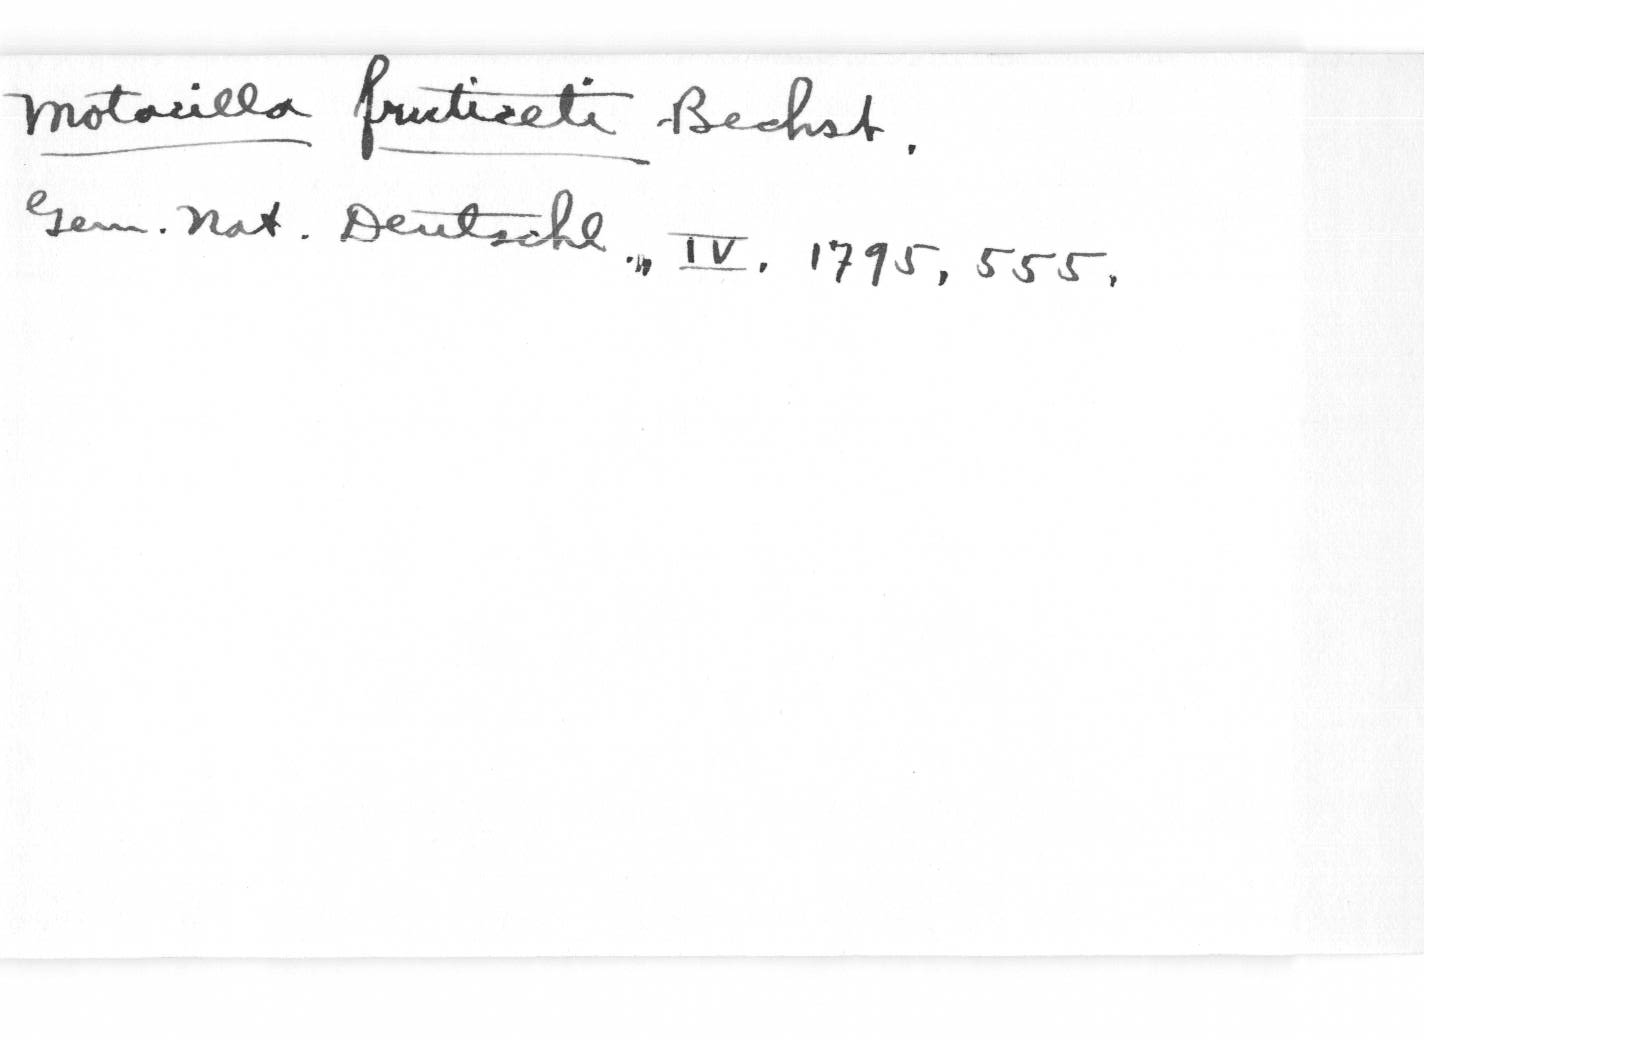 Motacilla fruticeti Bechst.
Gem. Nat. Deutschl., IV. 1795, 555.